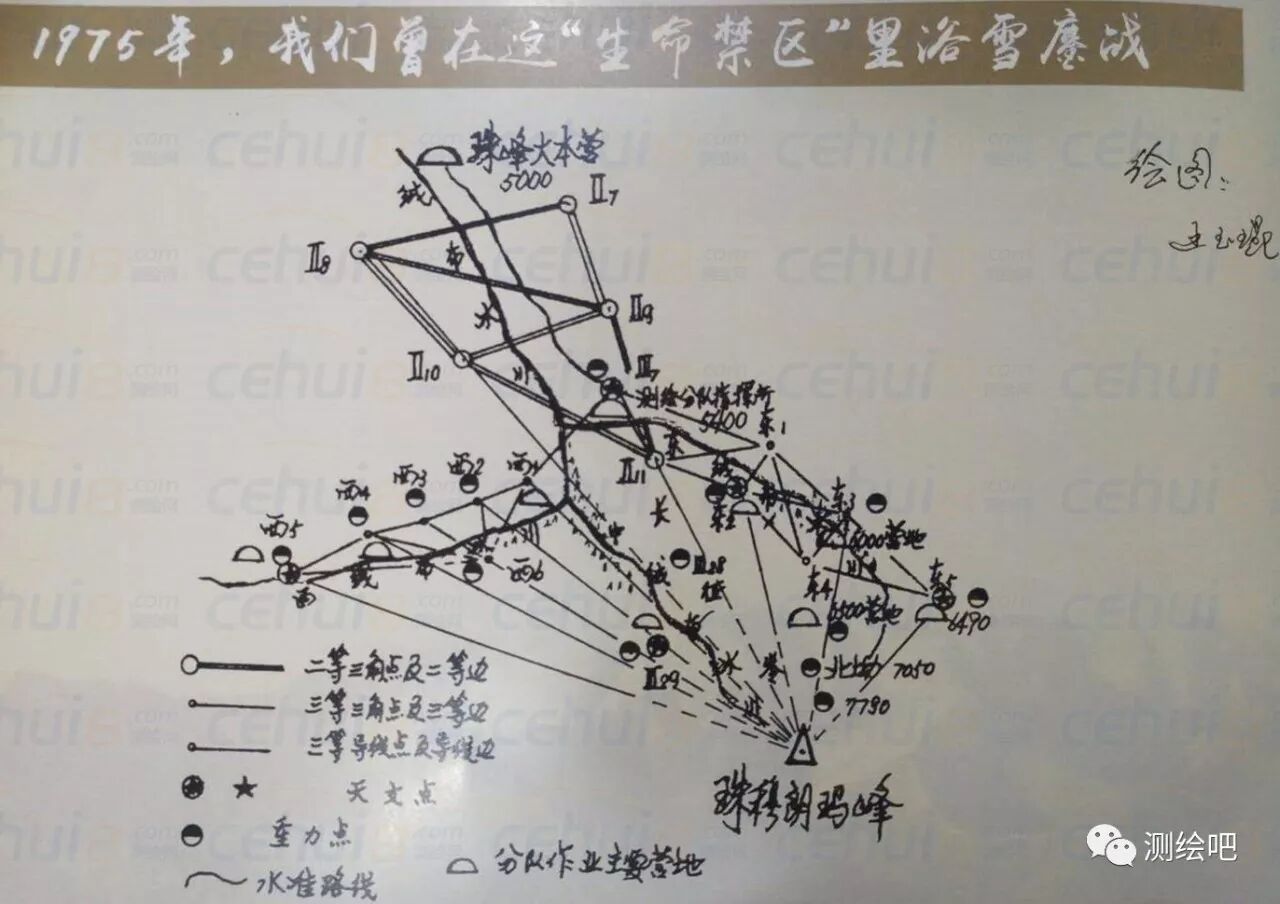 1975年，我们曾在这“生命禁区”里浴雪鏖战
绘图：
王玉琨
珠峰大本营
5000
绒
布
冰
川
II7
II8
II9
II10
III7
测绘分队指挥所
5400
II11
东1
东
绒
东2
东3
6000营地
东4
东5
6500营地
6490
北坳 7050
7790
西1
西2
西3
西4
西5
西6
西
绒
布
中
绒
布
冰
川
长
征
III28
III29
珠穆朗玛峰
二等三角点及二等边
三等三角点及三等边
三等导线点及导线边
天文点
重力点
水准路线
分队作业主要营地
测绘吧
cehui8.com